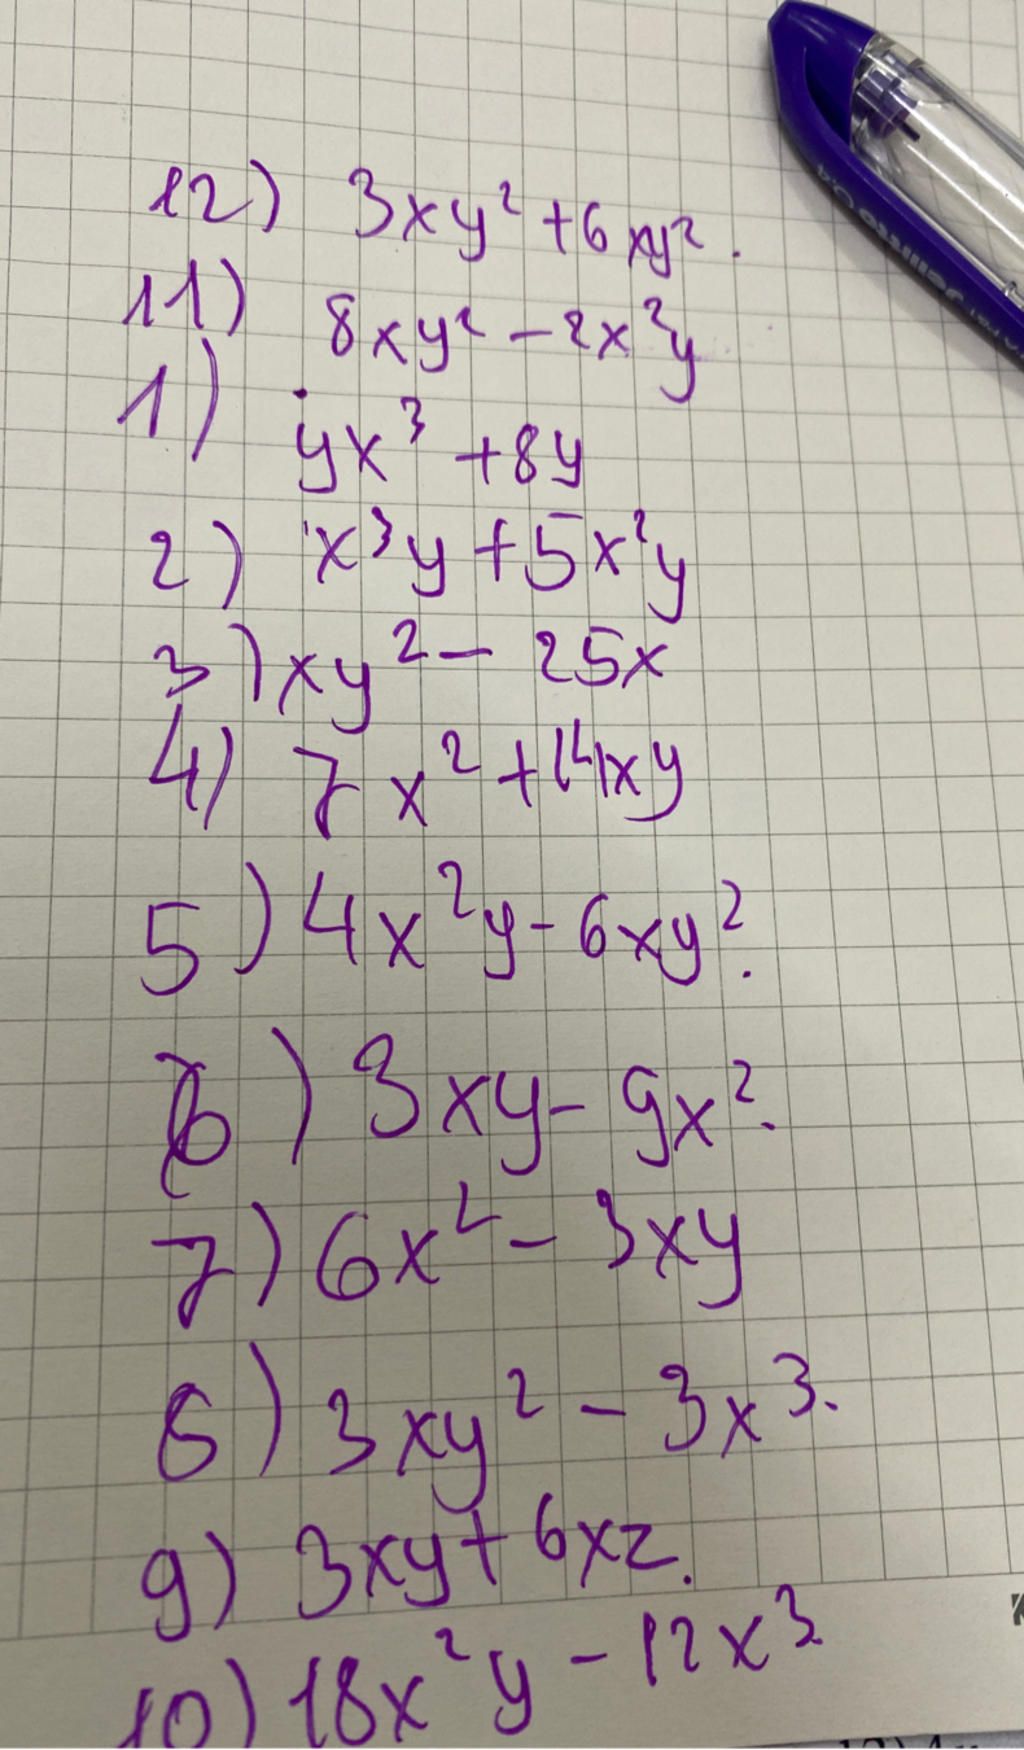 12) 3xy² + 6xy².
11) 8xy² - 2x²y
1) yx³ + 8y
2) x³y + 5x²y
3) xy² - 25x
4) 7x² + 14xy
5) 4x²y - 6xy².
6) 3xy - 9x².
7) 6x² - 3xy
8) 3xy² - 3x³.
9) 3xy + 6xz.
10) 18x²y - 12x³.